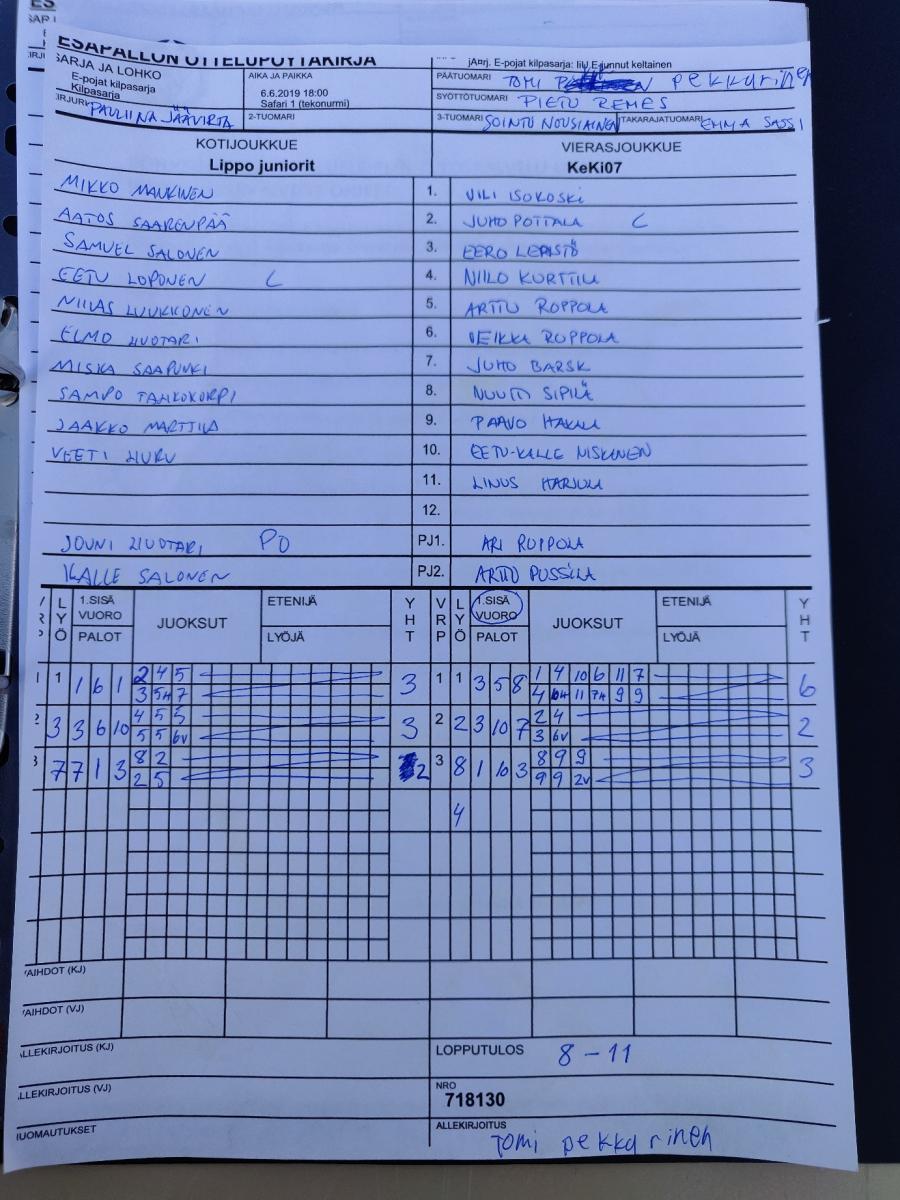 ESAPALLON OTTELUPÖYTÄKIRJA
SARJA JA LOHKO
E-pojat kilpasarja
Kilpasarja
AIKA JA PAIKKA
6.6.2019 18:00
Safari 1 (tekonurmi)
E-pojat kilpasarja: E-junnut keltainen
PÄÄTUOMARI TOMI pekkarinen
SYÖTTÖTUOMARI PIETU REMES
PAULIINA JÄÄVIRTA
2-TUOMARI
3-TUOMARI SOINTU NOUSIAINEN TAKARAJATUOMARI EMMA SASSI
KOTIJOUKKUE VIERASJOUKKUE
Lippo juniorit KeKi07
MIKKO MANKINEN 1. VILI ISOKOSKI
AATOS SAARENPÄÄ 2. JUHO POTTALA C
SAMUEL SALONEN 3. EERO LEPISTÖ
EETU LOPONEN C 4. NIILO KURTTILA
NIILAS LUUKKONEN 5. ARTTU ROPPOLA
ELMO HUOTARI 6. VEIKKA ROPPOLA
MISKA SAAPUNKI 7. JUHO BARSK
SAMPO TAHKOKORPI 8. NUUTTI SIPILÄ
JAAKKO MARTTILA 9. PAAVO HAKALA
VEETI HURU 10. EETU-KALLE NISKANEN
11. LINUS HARJULA
12.
JOUNI HUOTARI PJ1. ARI ROPPOLA
KALLE SALONEN PJ2. ARTTO PUSSILA
LYÖ 1.SISÄ VUORO PALOT JUOKSUT ETENIJÄ LYÖJÄ YHT VRP LYÖ 1.SISÄ VUORO PALOT JUOKSUT ETENIJÄ LYÖJÄ YHT
1 1 6 1 2 4 5 3 1 1 3 5 8 1 4 10 6 11 7 6
3 5H 7 4 6H 11 7H 9 9
3 3 6 10 4 5 5 3 2 2 3 10 7 2 4 2
5 5 6V 3 6V
7 7 1 3 8 2 2 3 8 1 10 3 8 9 9 3
2 5 9 9 2V
4
VAIHDOT (KJ)
VAIHDOT (VJ)
ALLEKIRJOITUS (KJ) LOPPUTULOS 8 - 11
ALLEKIRJOITUS (VJ) NRO
718130
HUOMAUTUKSET ALLEKIRJOITUS
Tomi pekkarinen